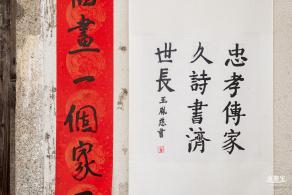 個畫一個家
忠孝傳家
久詩書濟
世長
王胤慈書